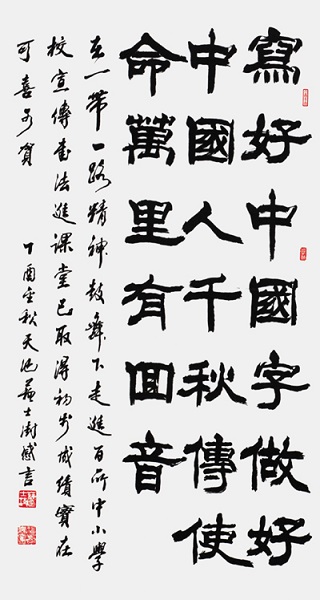 寫好中國字做好
中國人千秋傳使
命萬里有回音
在一帶一路精神鼓舞下走進百所中小學
校宣傳書法進課堂已取得初步成績實在
可喜可賀 丁酉金秋天池蘇士澍感言